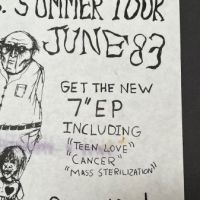 S. SUMMER TOUR
JUNE 83
GET THE NEW
7" EP
INCLUDING
"TEEN LOVE"
"CANCER"
"MASS STERILIZATION"